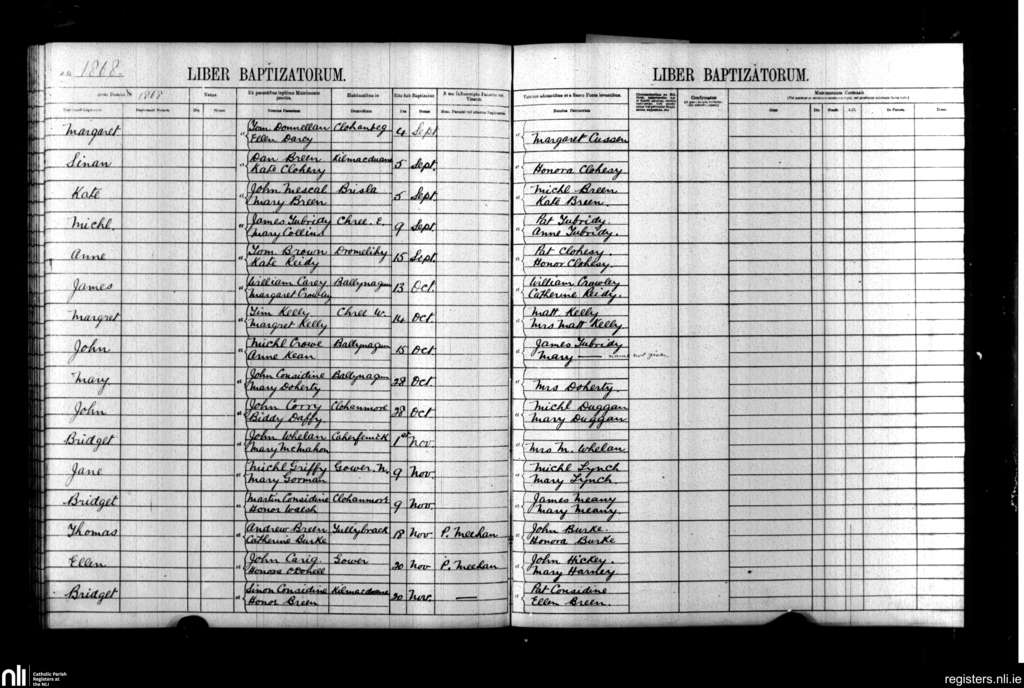 1868.
LIBER BAPTIZATORUM.
LIBER BAPTIZATORUM.
Anno Domini 1868
Natus
Ex parentibus legitimo Matrimonio junctis.
Habitantibus in
Rite fuit Baptizatus
Confirmatus
Matrimonium Contraxit
Margaret Tom Donnellan Clohanbeg 4 Sept
Ellen Darcy Margaret Cussen
Sinan Dan Breen Kilmacduane 5 Sept.
Kate Clohesy Honora Clohesy
Kate John Mescal Brisla 5 Sept. Michl Breen
Mary Breen Kate Breen.
Michl. James Tubridy Chree. E. 9 Sept Pat Tubridy
Mary Collins Anne Tubridy.
Anne Tom Brown Dromelihy 15 Sept. Pat Clohesy.
Kate Reidy Honor Clohesy.
James William Carey Ballynagun 13 Oct. William Crowley
Margaret Crowley Catherine Reidy.
Margret Tim Kelly Chree W. 14 Oct. Matt Kelly
Margret Kelly Mrs Matt Kelly
John Michl Crowe Ballynagun 15 Oct James Tubridy
Anne Kean Mary — name not given
Mary John Considine Ballynagun 28 Oct
Mary Doherty Mrs Doherty.
John John Corry Clohanmore 28 Oct Michl Duggan
Biddy Daffy. Mary Duggan
Bridget John Whelan Caherfenick 1st Nov.
Mary McMahon Mrs M. Whelan
Jane Michl Griffy Gower. N. 9 Nov. Michl Lynch
Mary Gorman Mary Lynch.
Bridget Martin Considine Clohanmore 9 Nov. James Meany
Honor Walsh Mary Meany.
Thomas Andrew Breen Tullybrack 18 Nov. P. Meehan John Burke.
Catherine Burke Honora Burke
Ellen John Carig Gower 20 Nov P. Meehan John Hickey.
Honora O'Dohell Mary Hanley
Bridget Sinon Considine Kilmacduane 20 Nov. — Pat Considine
Honor Breen Ellen Breen.
nli
Catholic Parish
Registers at
the NLI
registers.nli.ie